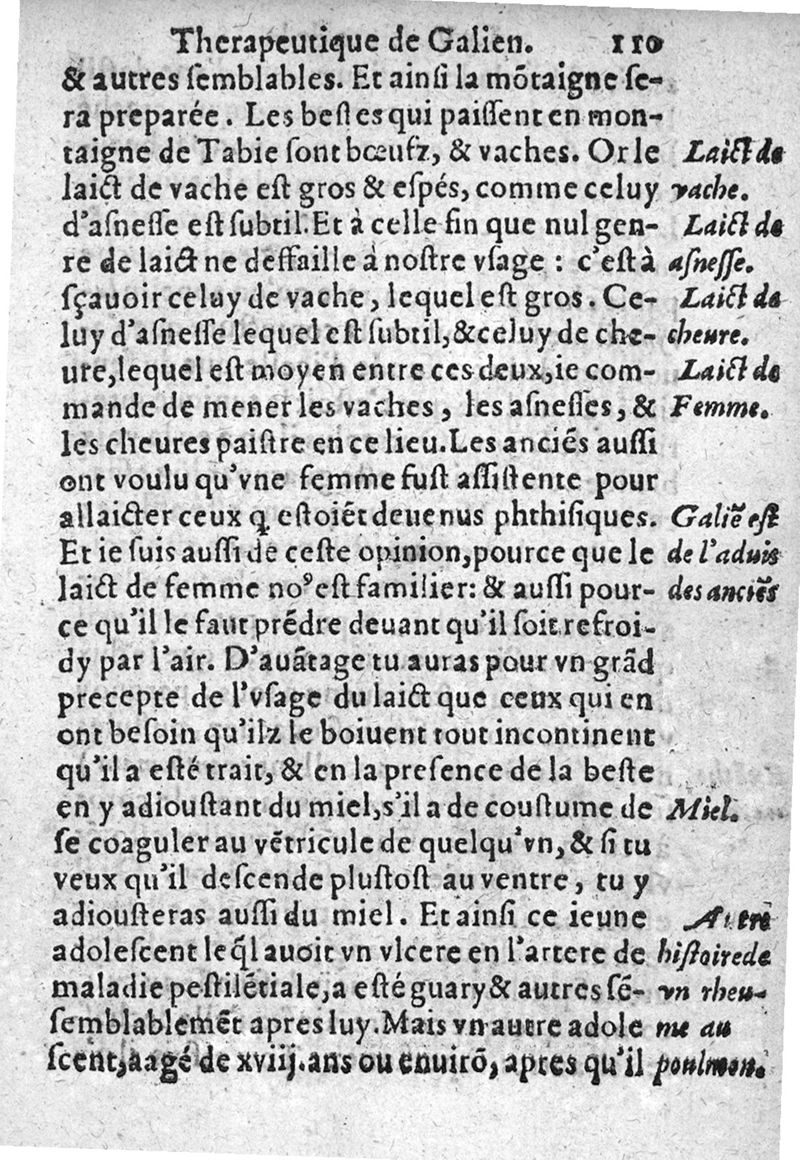 Therapeutique de Galien. 110
& autres ſemblables. Et ainſi la mõtaigne ſe-
ra preparée. Les beſtes qui paiſſent en mon-
taigne de Tabie ſont bœufz, & vaches. Or le
laict de vache eſt gros & eſpés, comme celuy
d'aſneſſe eſt ſubtil. Et à celle fin que nul gen-
re de laict ne deffaille à noſtre vſage : c'eſt à
ſçauoir celuy de vache, lequel eſt gros. Ce-
luy d'aſneſſe lequel eſt ſubtil, & celuy de che-
ure, lequel eſt moyen entre ces deux, ie com-
mande de mener les vaches, les aſneſſes, &
les cheures paiſtre en ce lieu. Les anciẽs auſſi
ont voulu qu'vne femme fuſt aſſiſtente pour
allaicter ceux q̨ eſtoiẽt deuenus phthiſiques.
Et ie ſuis auſſi de ceſte opinion, pource que le
laict de femme noꝰ eſt familier: & auſſi pour-
ce qu'il le faut prẽdre deuant qu'il ſoit refroi-
dy par l'air. D'auãtage tu auras pour vn grãd
precepte de l'vſage du laict que ceux qui en
ont beſoin qu'ilz le boiuent tout incontinent
qu'il a eſté trait, & en la preſence de la beſte
en y adiouſtant du miel, s'il a de couſtume de
ſe coaguler au vẽtricule de quelqu'vn, & ſi tu
veux qu'il deſcende pluſtoſt au ventre, tu y
adiouſteras auſſi du miel. Et ainſi ce ieune
adoleſcent leq̃l auoit vn vlcere en l'artere de
maladie peſtilẽtiale, a eſté guary & autres ſẽ-
ſemblablemẽt apres luy. Mais vn autre adole
ſcent, aagé de xviij. ans ou enuirõ, apres qu'il
Laict de
vache.
Laict de
aſneſſe.
Laict de
cheure.
Laict de
Femme.
Galiẽ eſt
de l'aduis
des anciẽs
Miel.
Autre
hiſtoire de
vn rheu-
me au
poulmon.